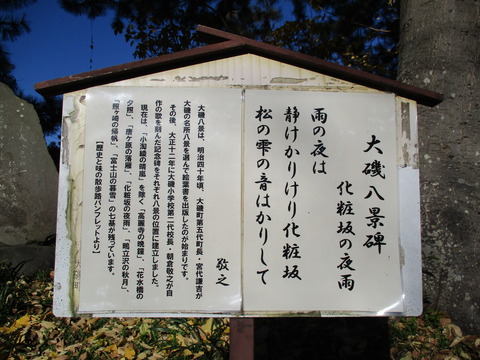 大磯八景碑
化粧坂の夜雨
雨の夜は
静けかりけり化粧坂
松の雫の音はかりして
敬之
大磯八景は、明治四十年頃、大磯町第五代町長・宮代謙吉が
大磯の名所八景を選んで絵葉書を出版したのが始まりです。
その後、大正十二年に大磯小学校第二代校長・朝倉敬之が自
作の歌を刻んだ記念碑をそれぞれ八景の位置に建立しました。
現在は、「小淘綾の晴嵐」を除く、「高麗寺の晩鐘」、「花水橋の
夕照」、「唐ケ原の落雁」、「化粧坂の夜雨」、「鴫立沢の秋月」、
「照ヶ崎の帰帆」、「富士山の暮雪」の七基が残っています。
【歴史と味の散歩路パンフレットより】